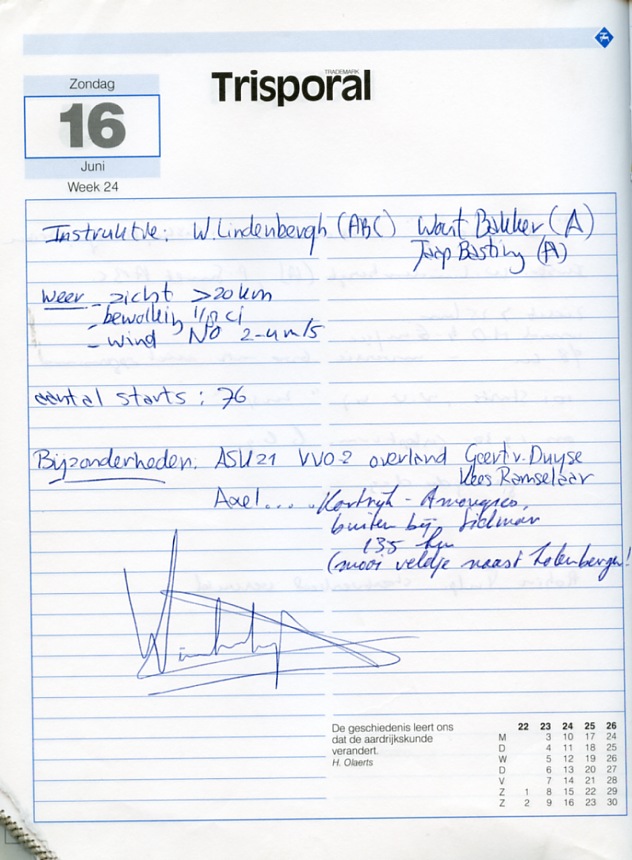 TRADEMARK
Trisporal
Zondag
16
Juni
Week 24
Instruktie: W. Lindenbergh (ABC) Wout Bakker (A)
Jaap Basting (A)
weer - zicht >20 km
- bewolking 1/8 ci
- wind NO 2-4 m/s
aantal starts: 76
Bijzonderheden. ASK21 VVO-2 overland Geert v. Duyse
Kees Ramselaar
Axel... Kortrijk - Amougies,
buiten bij Sidmar
135 km
(mooi veldje naast Lolenbergen!
De geschiedenis leert ons
dat de aardrijkskunde
verandert.
H. Olaerts
22 23 24 25 26
M 3 10 17 24
D 4 11 18 25
W 5 12 19 26
D 6 13 20 27
V 7 14 21 28
Z 1 8 15 22 29
Z 2 9 16 23 30